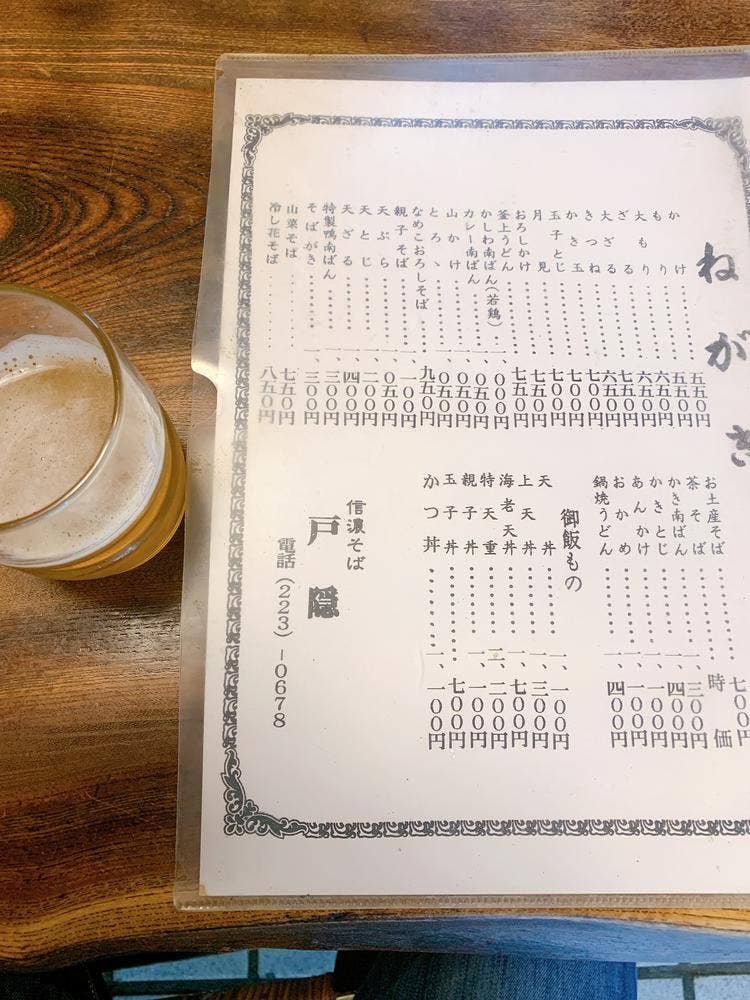 ねがき
かけ……五五〇円
もり……五五〇円
大もり……六五〇円
ざる……六五〇円
大ざる……七五〇円
きつね……六五〇円
かき玉……七〇〇円
玉子とじ……七〇〇円
月見……七〇〇円
おろしかけ……七五〇円
釜上うどん……七五〇円
かしわ南ばん(若鶏)……一、〇〇〇円
カレー南ばん……一、〇五〇円
山かけ……一、〇五〇円
とろゝ……一、〇五〇円
なめこおろしそば……九五〇円
親子そば……一、一〇〇円
天ぷら……一、〇五〇円
天とじ……一、二〇〇円
天ざる……一、四〇〇円
特製鴨南ばん……一、三〇〇円
そばがき……一、三〇〇円
山菜そば……七五〇円
冷し花そば……八五〇円
お土産そば……七〇〇円
茶そば……時価
かき南ばん……一、三〇〇円
かきとじ……一、四〇〇円
あんかけ……一、一〇〇円
おかめ……一、一〇〇円
鍋焼うどん……一、四〇〇円
御飯もの
天丼……一、一〇〇円
上天丼……一、三〇〇円
海老天丼……一、七〇〇円
特天重……二、二〇〇円
親子丼……一、一〇〇円
玉子丼……七〇〇円
かつ丼……一、一〇〇円
信濃そば
戸隠
電話(223)-0678